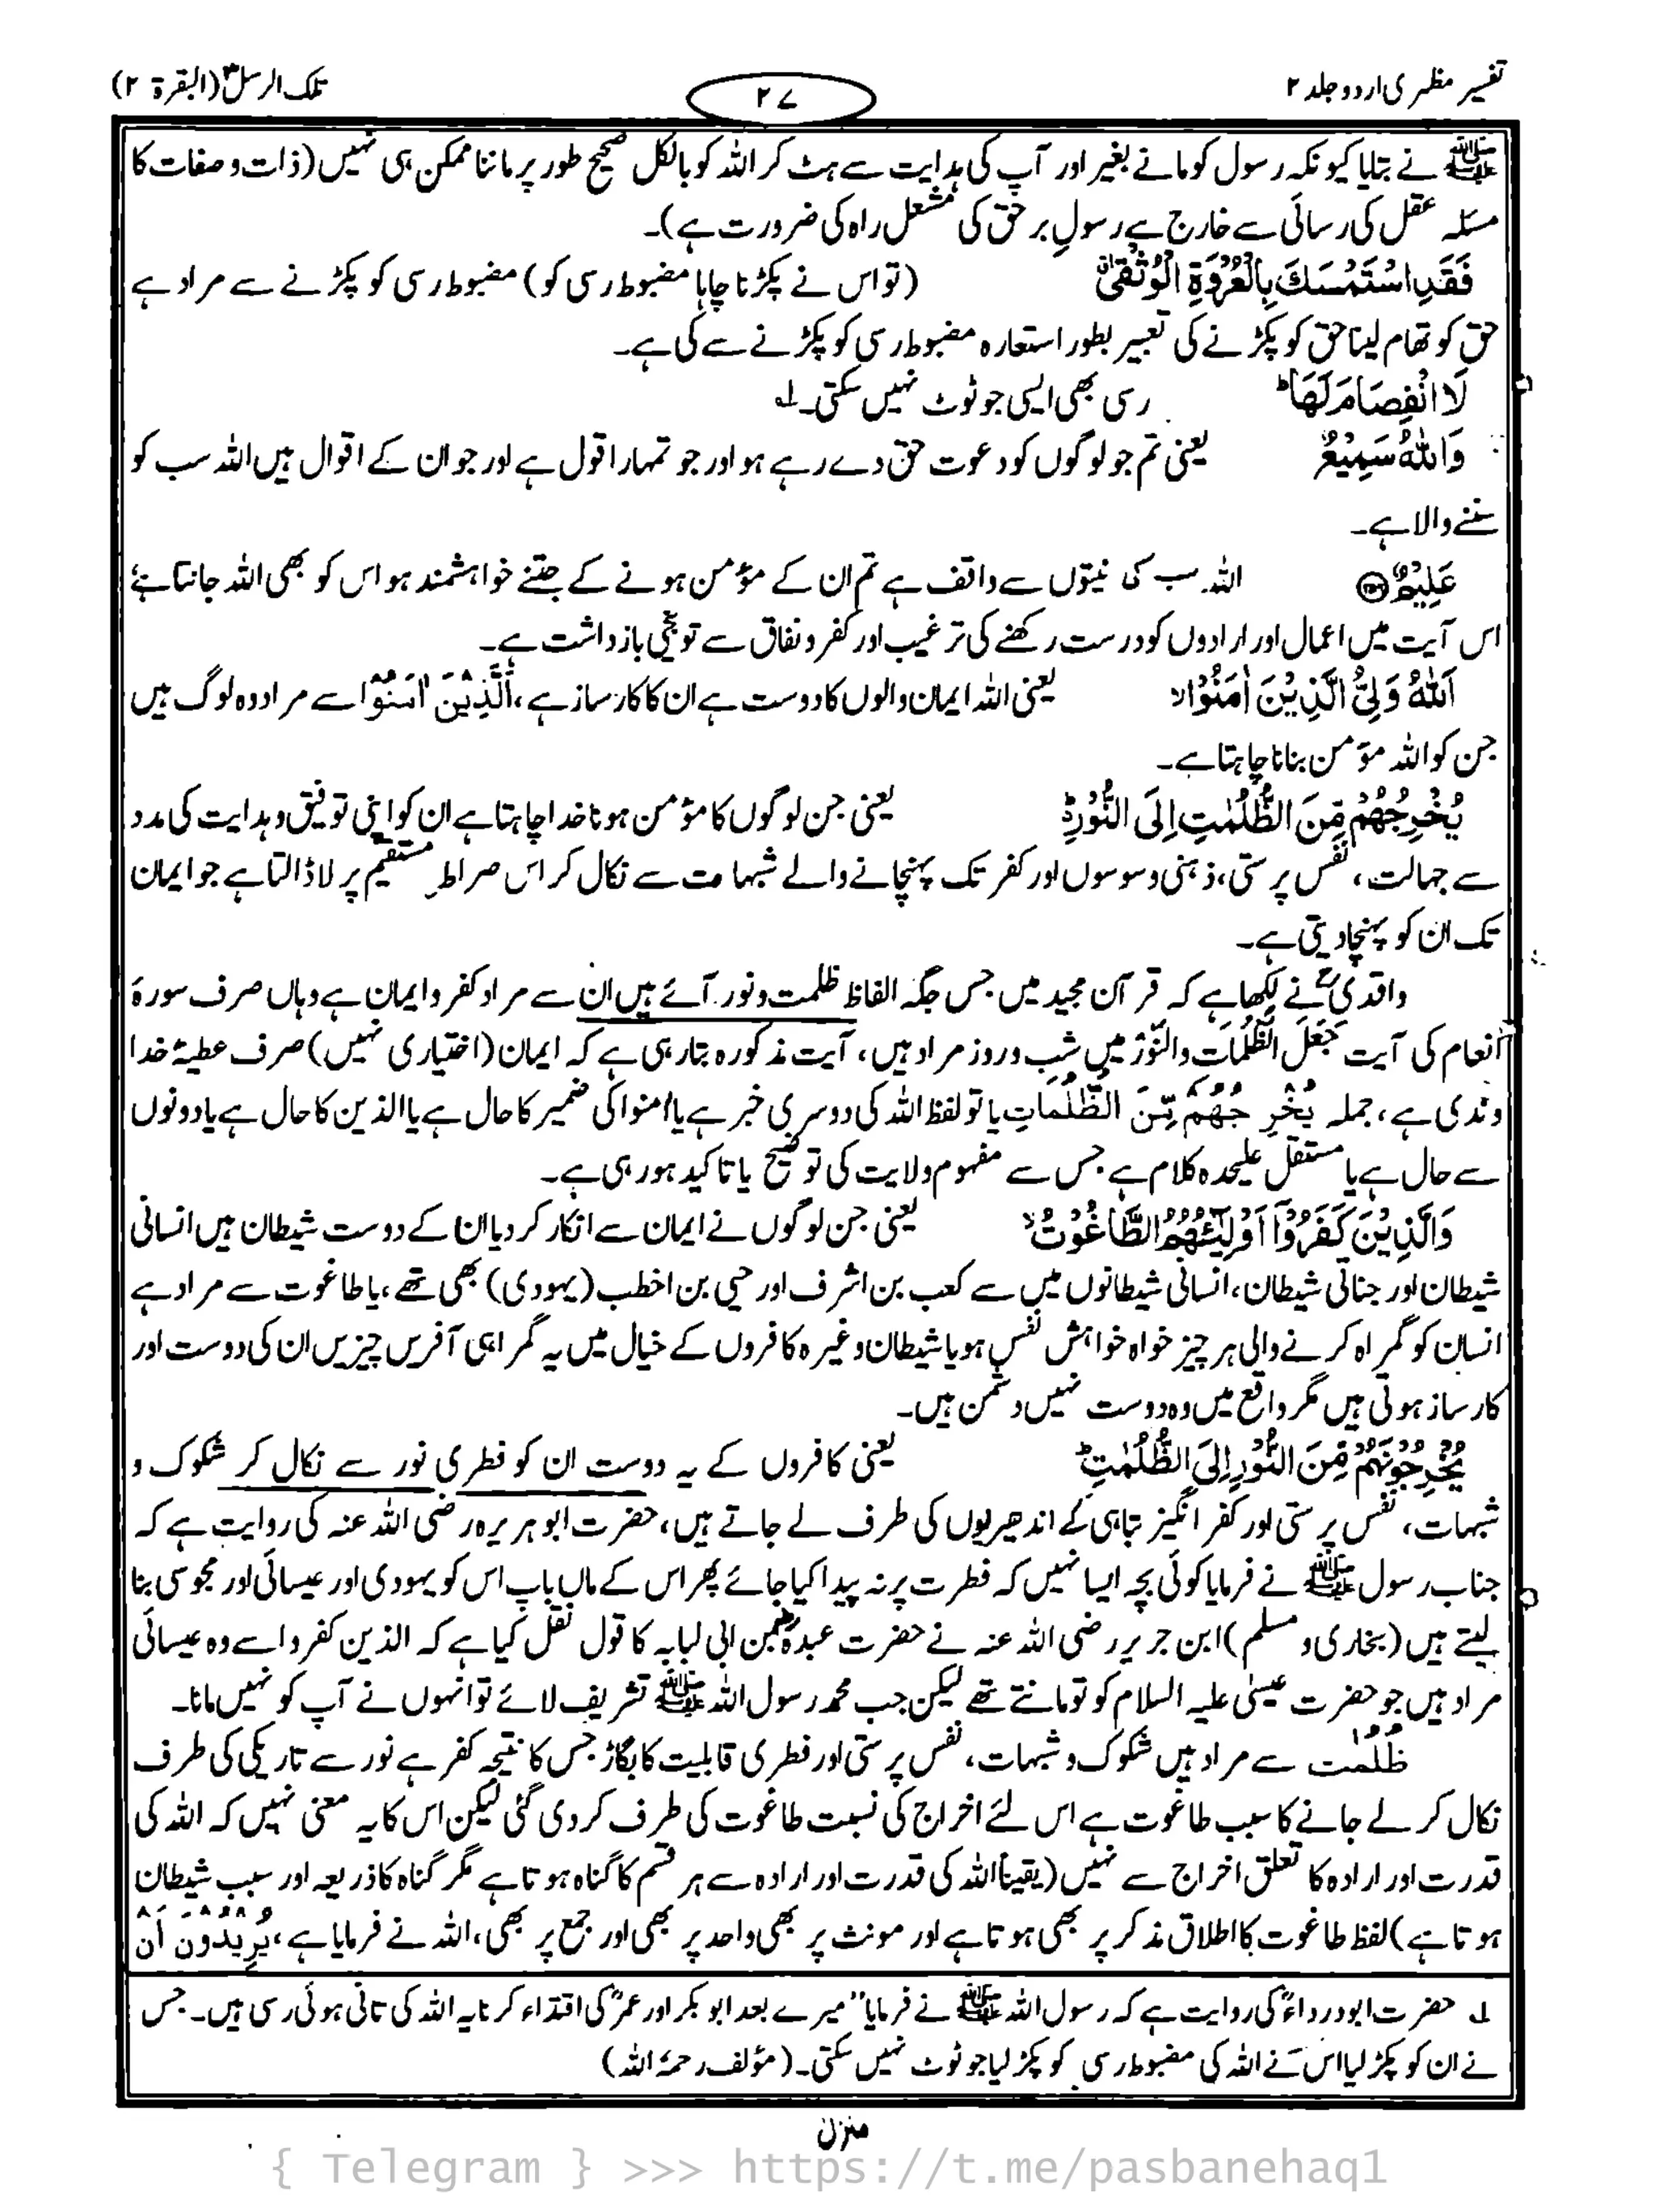 تفسیر مظہری اردو جلد ۲
۲۷
تلک الرسل۳ (البقرۃ ۲)
ﷺ نے بتایا کیونکہ رسول کو مانے بغیر اور آپ کی ہدایت سے ہٹ کر اللہ کو بالکل صحیح طور پر ماننا ممکن ہی نہیں (ذات و صفات کا
مسئلہ عقل کی رسائی سے خارج ہے رسولِ برحق کی مشعل راہ کی ضرورت ہے)۔
فَقَدِ اسْتَمْسَكَ بِالْعُرْوَةِ الْوُثْقٰىۗ (تو اس نے پکڑنا چاہا مضبوط رسی کو) مضبوط رسی کو پکڑنے سے مراد ہے
حق کو تھام لینا حق کو پکڑنے کی تعبیر بطور استعارہ مضبوط رسی کو پکڑنے سے کی ہے۔
لَا انْفِصَامَ لَهَا ؕ رسی بھی ایسی جو ٹوٹ نہیں سکتی۔ ۱؎
وَاللّٰهُ سَمِيْعٌ یعنی تم جو لوگوں کو دعوت حق دے رہے ہو اور جو تمہارا قول ہے اور جو ان کے اقوال ہیں اللہ سب کو
سننے والا ہے۔
عَلِيْمٌ ۝ اللہ سب کی نیتوں سے واقف ہے تم ان کے مؤمن ہونے کے جتنے خواہشمند ہو اس کو بھی اللہ جانتا ہے
اس آیت میں اعمال اور ارادوں کو درست رکھنے کی ترغیب اور کفر و نفاق سے توبیخی بازداشت ہے۔
اَللّٰهُ وَلِيُّ الَّذِيْنَ اٰمَنُوْا ۙ یعنی اللہ ایمان والوں کا دوست ہے ان کا کارساز ہے، اَلَّذِیْنَ اٰمَنُوْا سے مراد وہ لوگ ہیں
جن کو اللہ مؤمن بنانا چاہتا ہے۔
يُخْرِجُهُمْ مِّنَ الظُّلُمٰتِ اِلَى النُّوْرِ ؕ یعنی جن لوگوں کا مؤمن ہونا خدا چاہتا ہے ان کو اپنی توفیق و ہدایت کی مدد
سے جہالت، نفس پرستی، ذہنی وسوسوں اور کفر تک پہنچانے والے شبہات سے نکال کر اس صراطِ مستقیم پر لا ڈالتا ہے جو ایمان
تک ان کو پہنچا دیتی ہے۔
واقدیؒ نے لکھا ہے کہ قرآن مجید میں جس جگہ الفاظ ظلمت و نور آئے ہیں ان سے مراد کفر و ایمان ہے وہاں صرف سورۃ
انعام کی آیت جَعَلَ الظُّلُمَاتِ وَالنُّوْرَ میں شب و روز مراد ہیں، آیت مذکورہ بتا رہی ہے کہ ایمان (اختیاری نہیں) صرف عطیۂ خدا
وندی ہے، جملہ یُخْرِجُهُمْ مِّنَ الظُّلُمَاتِ یا تو لفظ اللہ کی دوسری خبر ہے یا اٰمنوا کی ضمیر کا حال ہے یا الذین کا حال ہے یا دونوں
سے حال ہے یا مستقل علیحدہ کلام ہے جس سے مفہوم ولایت کی توضیح یا تاکید ہو رہی ہے۔
وَالَّذِيْنَ كَفَرُوْۤا اَوْلِيٰٓـُٔهُمُ الطَّاغُوْتُ ۙ یعنی جن لوگوں نے ایمان سے انکار کر دیا ان کے دوست شیطان ہیں انسانی
شیطان اور جناتی شیطان، انسانی شیطانوں میں سے کعب بن اشرف اور حیی بن اخطب (یہودی) بھی تھے، یا طاغوت سے مراد ہے
انسان کو گمراہ کرنے والی ہر چیز خواہ خواہش نفس ہو یا شیطان وغیرہ کافروں کے خیال میں یہ گمراہی آفریں چیزیں ان کی دوست اور
کارساز ہوتی ہیں مگر واقع میں وہ دوست نہیں دشمن ہیں۔
يُخْرِجُوْنَهُمْ مِّنَ النُّوْرِ اِلَى الظُّلُمٰتِ ؕ یعنی کافروں کے یہ دوست ان کو فطری نور سے نکال کر شکوک و
شبہات، نفس پرستی اور کفر انگیز تباہی کے اندھیریوں کی طرف لے جاتے ہیں، حضرت ابو ہریرہ رضی اللہ عنہ کی روایت ہے کہ
جناب رسول ﷺ نے فرمایا کوئی بچہ ایسا نہیں کہ فطرت پر نہ پیدا کیا جائے پھر اس کے ماں باپ اس کو یہودی اور عیسائی اور مجوسی بنا
لیتے ہیں (بخاری و مسلم) ابن جریر رضی اللہ عنہ نے حضرت عبدہ بن ابی لبابہ کا قول نقل کیا ہے کہ الذین کفروا سے وہ عیسائی
مراد ہیں جو حضرت عیسیٰ علیہ السلام کو تو مانتے تھے لیکن جب محمد رسول اللہ ﷺ تشریف لائے تو انہوں نے آپ کو نہیں مانا۔
ظُلُمٰت سے مراد ہیں شکوک و شبہات، نفس پرستی اور فطری قابلیت کا بگاڑ جس کا نتیجہ کفر ہے نور سے تاریکی کی طرف
نکال کر لے جانے کا سبب طاغوت ہے اس لئے اخراج کی نسبت طاغوت کی طرف کر دی گئی لیکن اس کا یہ معنی نہیں کہ اللہ کی
قدرت اور ارادہ کا تعلق اخراج سے نہیں (یقیناً اللہ کی قدرت اور ارادہ سے ہر قسم کا گناہ ہوتا ہے مگر گناہ کا ذریعہ اور سبب شیطان
ہوتا ہے) لفظ طاغوت کا اطلاق مذکر پر بھی ہوتا ہے اور مونث پر بھی واحد پر بھی اور جمع پر بھی، اللہ نے فرمایا ہے، یُرِیْدُوْنَ اَنْ
۱؎ حضرت ابودرداءؓ کی روایت ہے کہ رسول اللہ ﷺ نے فرمایا "میرے بعد ابو بکر اور عمرؓ کی اقتداء کرنا یہ اللہ کی تانی ہوئی رسی ہیں۔ جس
نے ان کو پکڑ لیا اس نے اللہ کی مضبوط رسی کو پکڑ لیا جو ٹوٹ نہیں سکتی۔ (مؤلف رحمۃ اللہ)
منزل
{ Telegram } >>> https://t.me/pasbanehaq1